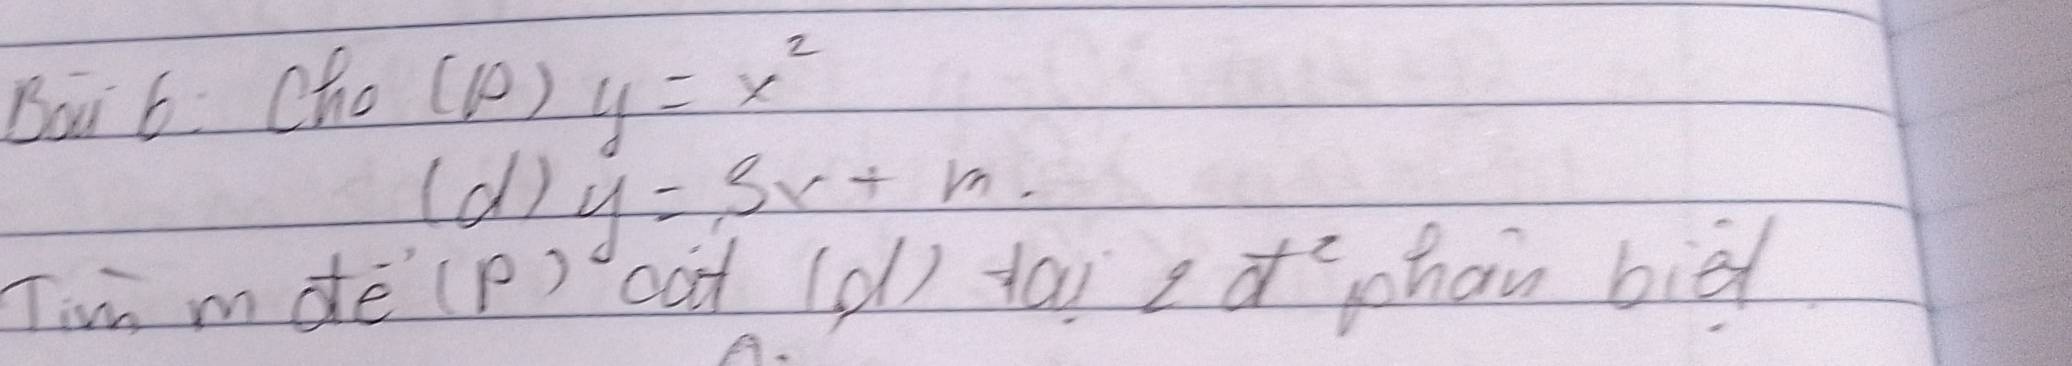 Bài 6: Cho (P) y = x²
(d) y = 3x + m.
Tìm m để (P) cắt (d) tại 2 đ² phân biệt